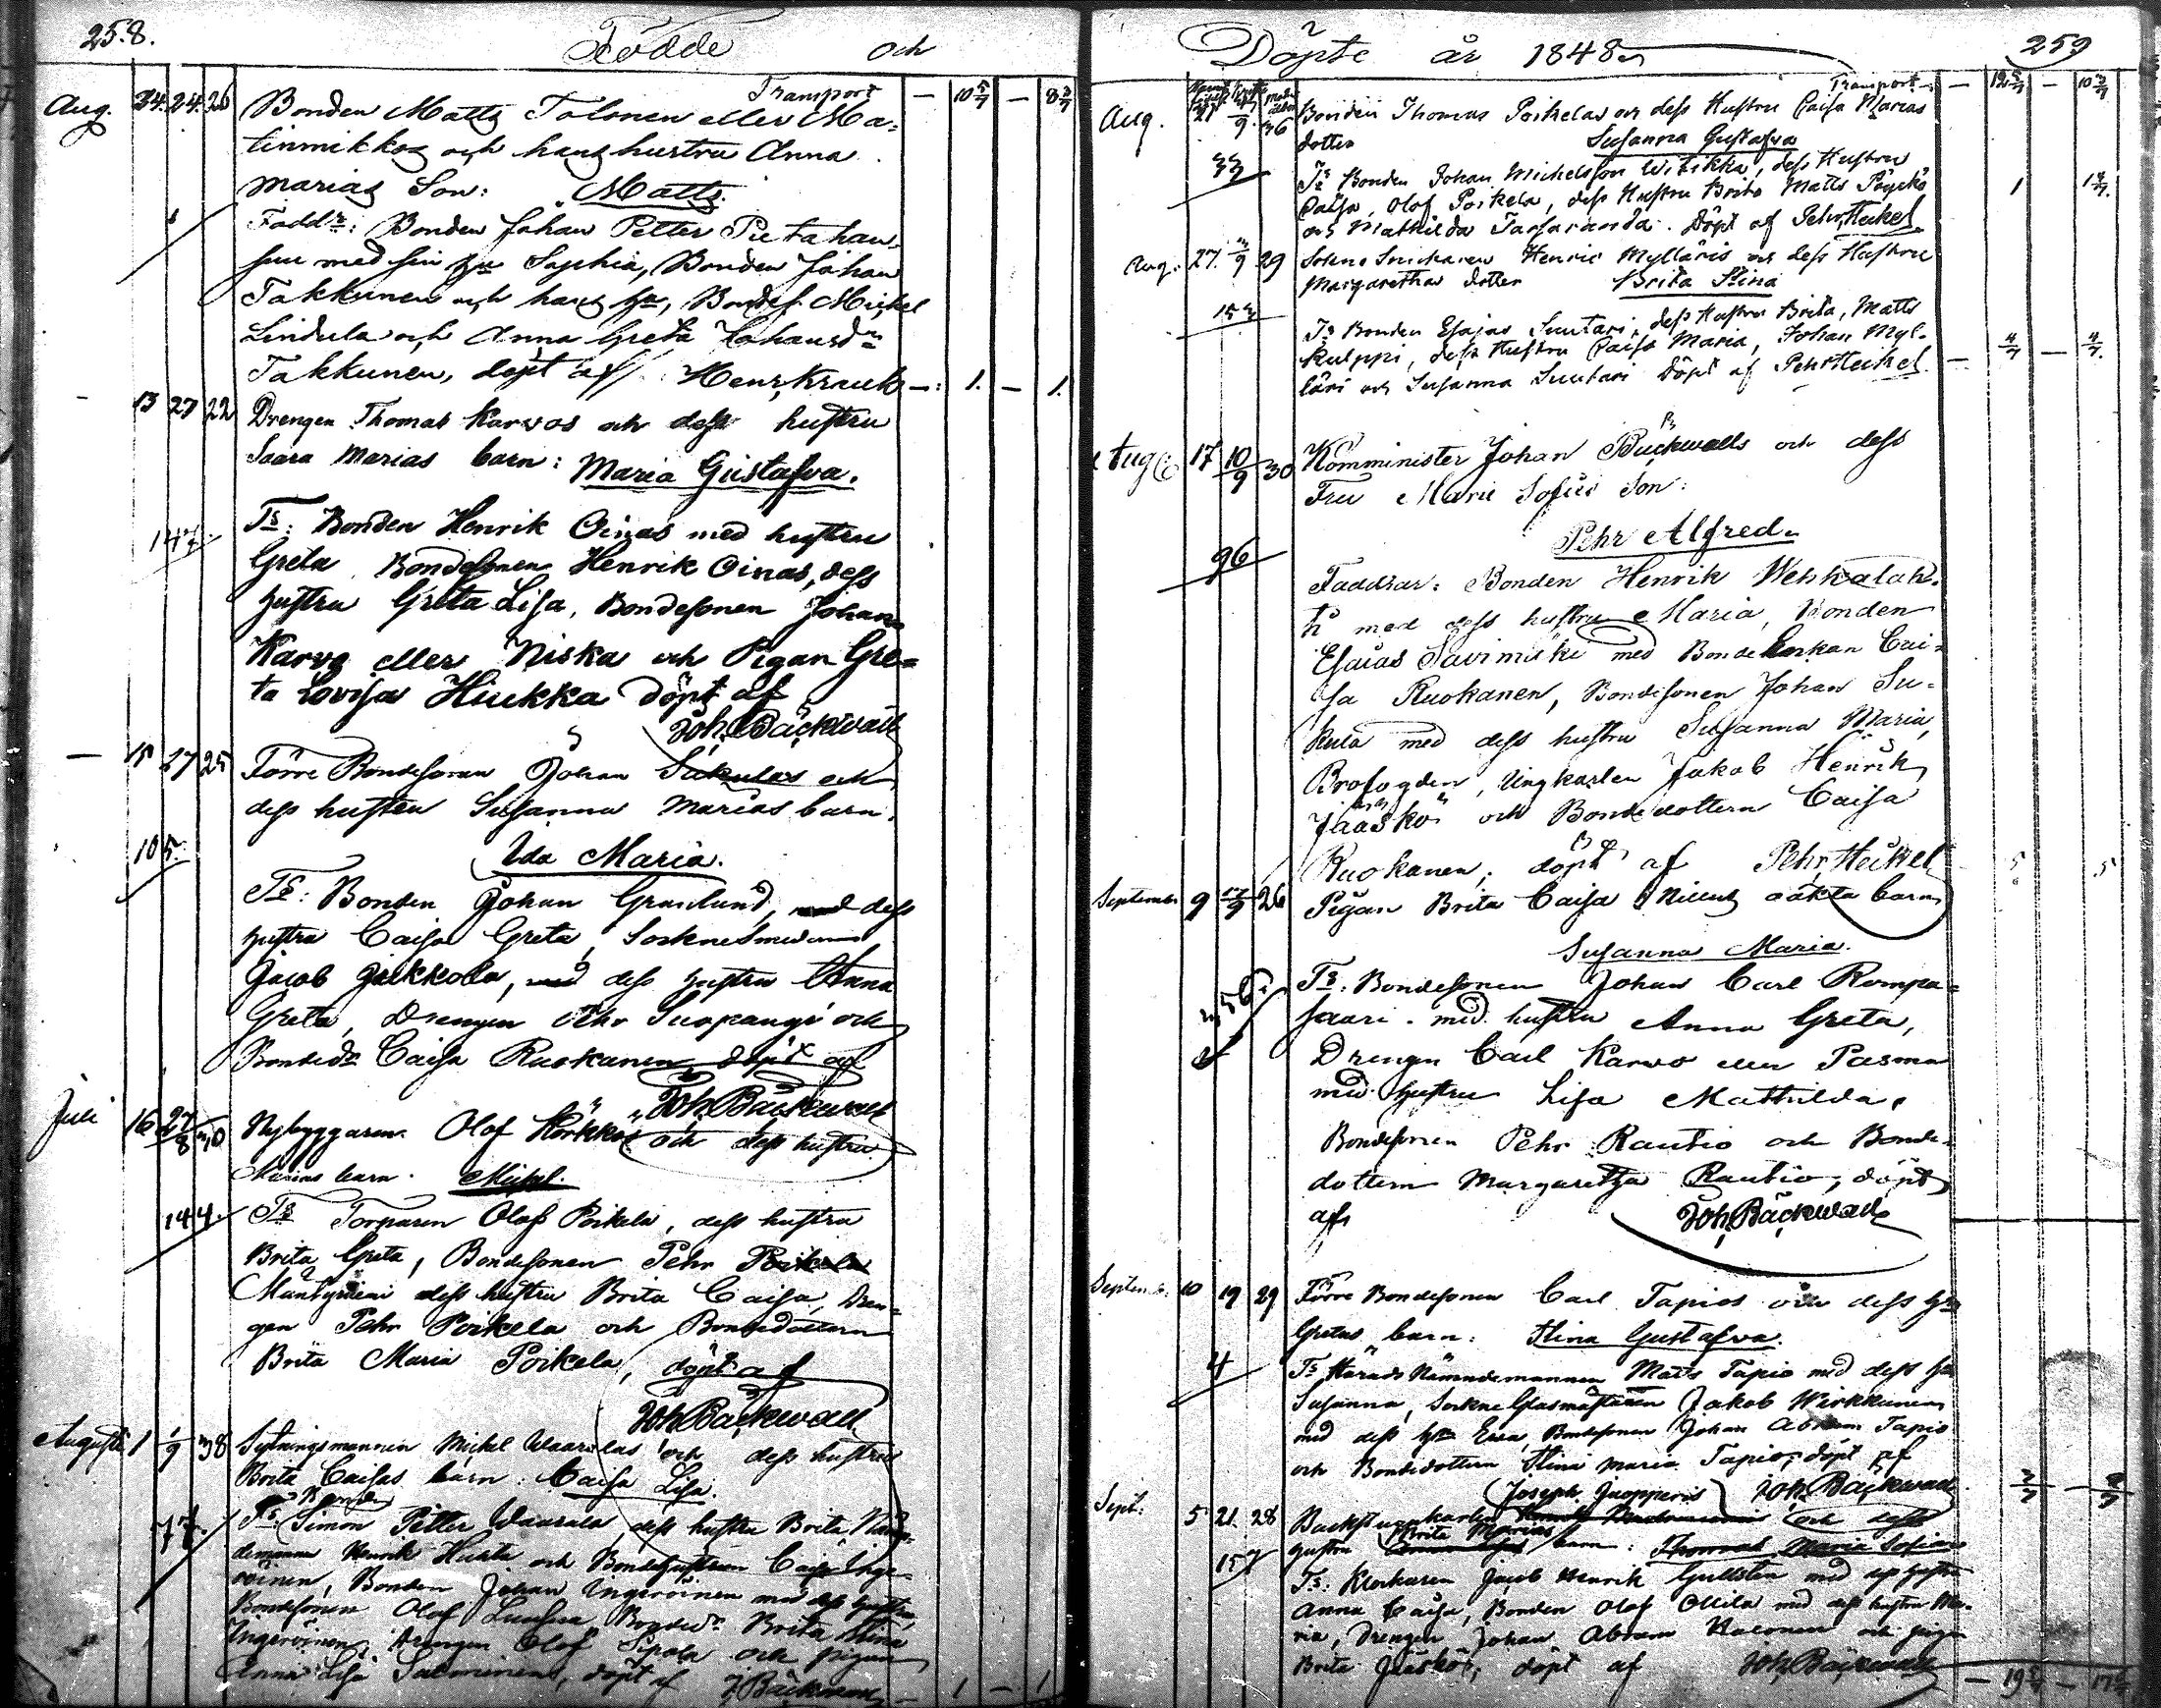 258.
Födde och
Transport — 10 5/7 — 8 3/7
Aug. 24. 24. 26 Bonden Matts Tolonen eller Ma-
tinmikkos och hans hustru Anna
Marias Son: Matts.
Faddr: Bonden Johan Petter Pietahan
med sin Hu Sophia, Bonden Johan
Takkunen och hans Hu, Bondes. Michel
Lindula och Anna Greta Johansdr
Takkunen, döpt af Henr. Krank —: 1. — 1.
13 27 22 Drengen Thomas Karvos och dess hustru
Saara Marias barn: Maria Gustafva.
Ts: Bonden Henrik Oinas med hustru
Greta, Bondesonen Henrik Oinas, dess
hustru Greta Lisa, Bondesonen Johan
Karvo eller Niska och Pigan Gre-
ta Lovisa Hiukka döpt af
Joh. Bäckwall
— 15 27 25 Förre Bondesonen Johan Sukulas och
dess hustru Susanna Marias barn.
105.
Ida Maria.
Ts: Bonden Johan Granlund, dess
hustru Caisa Greta, Sockne Smeden
Jacob Jakkola, dess hustru Anna
Greta, Drengen Pehr Suopangi och
Bondedr Caisa Ruokanen, döpt af
Joh. Bäckwall
Juli 16 27/8 30 Nybyggaren Olof Körkkös och dess hustru
Marias barn. Michel.
144. Ts Torparen Olof Poikela, dess hustru
Brita Greta, Bondesonen Pehr Poikela
Mäntyniemi dess hustru Brita Caisa, Dren-
gen Pehr Poikela och Bondedottern
Brita Maria Poikela, döpt af
Joh. Bäckwall
Augusti 1 1/9 38 Sytningsmannen Michel Waaralas och dess hustru
Brita Caisas barn: Caisa Lisa.
77. Ts: Bonden Simon Petter Waarala, dess hustru Brita, Näm-
demannen Henrik Hurta och Bondehustrun Caisa Inge-
roinen, Bonden Johan Ingeroinen med dess hustru,
Bondesonen Olof Luusua, Bondedr Brita Stina
Ingeroinen, Drengen Olof Sipola och pigan
Anna Lisa Salminen, döpt af J. Bäckwall — 1 — 1
Döpte år 1848.
259
Transport — 12 5/7 — 10 3/7
Aug. 21 9. 36 Bonden Thomas Poikelas och dess Hustru Caisa Marias
dotter Susanna Gustafva
33 Ts Bonden Johan Michelsson Witikka, dess Hustru
Caisa, Olof Poikela, dess Hustru Brita Matts Pöyckö
och Mathilda Tarfaranda. Döpt af Pehr Heikel 1
Aug. 27. 3/9 29 Sockne Snickaren Henric Mylläris och dess Hustru
Margarethas dotter Brita Stina
Ts Bonden Esajas Suutari, dess Hustru Brita, Matts
Kulppi, dess Hustru Caisa Maria, Johan Myl-
läri och Susanna Suutari Döpt af Pehr Heikel — 4/7 — 4/7.
Aug. 17 10/9 30 Komminister Johan Bäckwalls och dess
Fru Marie Sofies Son:
Pehr Alfred.
96
Faddrar: Bonden Henrik Wehkalah-
ti med dess hustru Maria, Bonden
Esaias Savimäki med Bonde Enkan Cai-
sa Ruokanen, Bondesonen Johan Su-
kula med dess hustru Susanna Maria,
Brofogden, Ungkarlen Jakob Henrik
Jääskö och Bondedottern Caisa
Ruokanen, döpt af Pehr Heikel 5 5
September 9 17/9 26 Pigan Brita Caisa oäkta barn
Susanna Maria.
Ts: Bondesonen Johan Carl Rompa-
saari med hustru Anna Greta,
Drengen Carl Karvo eller Pasma
med hustru Lisa Mathilda,
Bondesonen Pehr Rautio och Bonde-
dottern Margaretha Rautio, döpt
af Joh. Bäckwall
Septemb. 10 19 29 Förre Bondesonen Carl Tapios och dess Hu
Gretas barn: Stina Gustafva.
4 Ts Härads Nämndemannen Matts Tapio med dess Hu
Susanna, Sockne Glasmästaren Jakob Wirkkunen
med dess Hu Eva, Bondesonen Johan Abram Tapio
och Bondedottern Stina Maria Tapio, döpt af
Joh. Bäckwall 2/7 — 2/7
Sept. 5 21. 28 Backstugukarlen Joseph Juopperis och dess
hustru Brita Marias barn: Thomas Maria Sofia
157 Ts: Klockaren Jacob Henrik Gullsten med dess hustru
Anna Caisa, Bonden Olof Ollila med dess hustru Ma-
ria, Drengen Johan Abram Halonen och pigan
Brita Jääskö, döpt af Joh. Bäckwall — 19